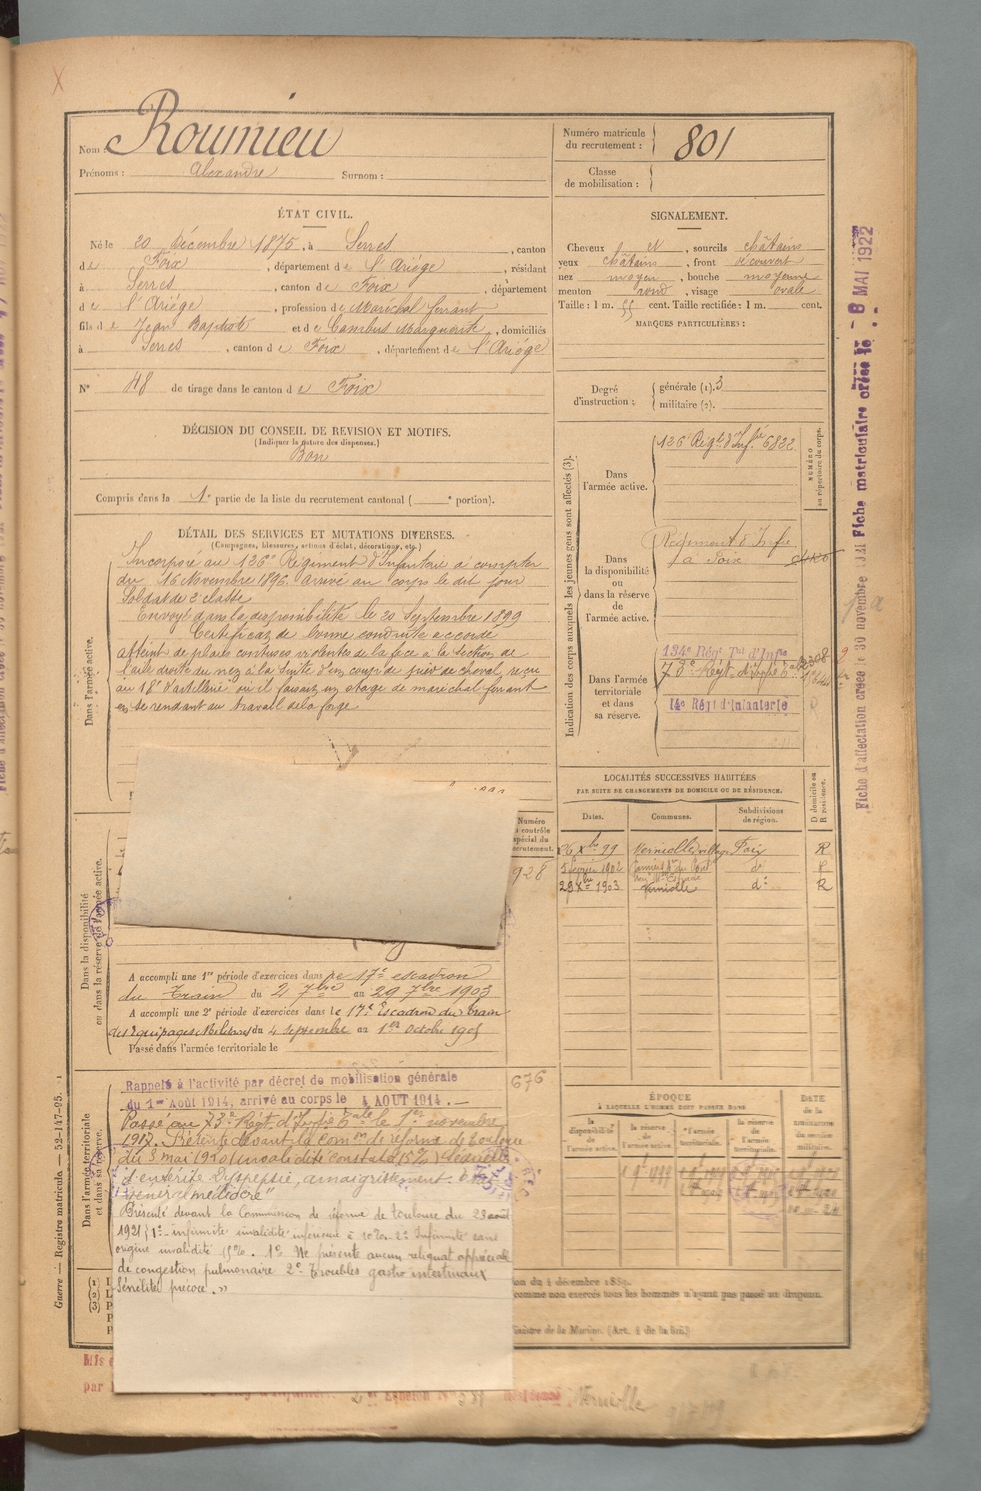 Nom : Roumieu
Prénoms : Alexandre Surnom :
Numéro matricule du recrutement : 801
Classe de mobilisation :
ÉTAT CIVIL.
Né le 20 Décembre 1875, à Serres, canton
de Foix, département de l'Ariége, résidant
à Serres, canton de Foix, département
de l'Ariége, profession de Maréchal ferrant
fils de Jean Baptiste et de Cambus Marguerite, domiciliés
à Serres, canton de Foix, département de l'Ariége
N° 48 de tirage dans le canton de Foix
DÉCISION DU CONSEIL DE REVISION ET MOTIFS.
(Indiquer la nature des dispenses.)
Bon
Compris dans la 1e partie de la liste du recrutement cantonal ( e portion).
SIGNALEMENT.
Cheveux N, sourcils châtains
yeux châtains, front découvert
nez moyen, bouche moyenne
menton rond, visage ovale
Taille : 1 m. 55 cent. Taille rectifiée : 1 m. cent.
MARQUES PARTICULIÈRES :
Degré d'instruction : générale (1). 3
militaire (2).
DÉTAIL DES SERVICES ET MUTATIONS DIVERSES.
(Campagnes, blessures, actions d'éclat, décorations, etc.)
Dans l'armée active.
Incorporé au 126e Régiment d'Infanterie à compter
du 16 Novembre 1896. arrivé au corps le dit jour
Soldat de 2e classe
Envoyé dans la disponibilité le 20 Septembre 1899
Certificat de bonne conduite accordé
atteint de plaies contuses violentes de la face à la section de
l'aile droite du nez à la suite d'un coup de pied de cheval, reçu
au 18e d'artillerie où il faisait un stage de maréchal ferrant
en se rendant au travail de la forge
Indication des corps auxquels les jeunes gens sont affectés (3).
NUMÉRO au répertoire du corps.
Dans l'armée active.
126e Régt d'Infie 6822
Dans la disponibilité ou dans la réserve de l'armée active.
Régiment d'Infie
à Foix
Dans l'armée territoriale et dans sa réserve.
134e Régt Tal d'Infie
73e Régt
14e Régt d'Infanterie
Dans la disponibilité ou dans la réserve de l'armée active.
Numéro contrôle spécial du recrutement.
928
A accompli une 1re période d'exercices dans le 17e escadron
du Train du 2 7bre au 29 7bre 1903
A accompli une 2e période d'exercices dans le 17e Escadron du train
des Equipages Militaires du 4 septembre au 1er octobre 1905
Passé dans l'armée territoriale le
LOCALITÉS SUCCESSIVES HABITÉES
PAR SUITE DE CHANGEMENTS DE DOMICILE OU DE RÉSIDENCE.
Dates. Communes. Subdivisions de région. D domicile ou R résidence.
26 Xbre 99 Verniolle, village Foix R
5 février 1902 Pamiers do
29 Xbre 1903 Verniolle do R
Dans l'armée territoriale et dans sa réserve.
Rappelé à l'activité par décret de mobilisation générale
du 1er Août 1914, arrivé au corps le 4 AOUT 1914.
676
Passé au 73e Régt d'Infie Tale le 1er novembre
1917. Présenté devant la Comon de réforme de Toulouse
du 3 mai 1920 (invalidité constatée 15%)
d'entérite Dyspepsie, amaigrissement. état
général médiocre"
Présenté devant la Commission de réforme de Toulouse du 23 août
1921 { 1°- infirmité invalidité inférieure à 10%. 2° Infirmité sans
origine invalidité 15%. 1° Ne présente aucun reliquat appréciable
de congestion pulmonaire 2° Troubles gastro intestinaux
Sénilité précoce. »
ÉPOQUE
À LAQUELLE L'HOMME DOIT PASSER DANS
la disponibilité de l'armée active. la réserve de l'armée active. l'armée territoriale. la réserve de l'armée territoriale.
DATE de la libération du service militaire.
comme non exercés tous les hommes n'ayant pas passé au drapeau.
Ministre de la Marine. (Art. 4 de la loi.)
Résidence : Verniolle
Guerre — Registre matricule. — 52-147-95. 1
Fiche matriculaire créée le 8 MAI 1922
Fiche d'affectation créée le 30 novembre